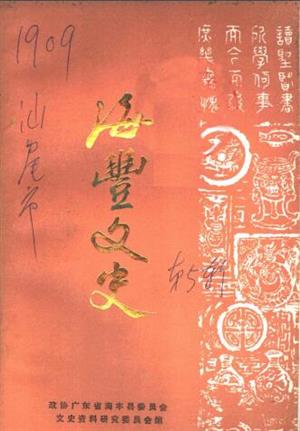 1909
汕尾市
讀聖賢書
所學何事
而今而後
庶幾無愧
海豐文史
第5辑
政协广东省海丰县委员会
文史资料研究委员会编